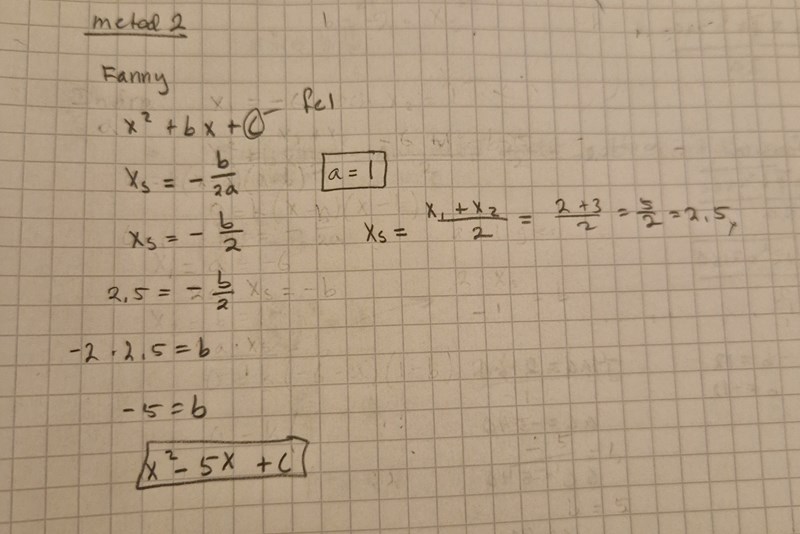 metod 2
Fanny
x² + bx + c – fel
xs = - b/2a   a = 1
xs = - b/2   xs = x₁ + x₂/2 = 2 + 3/2 = 5/2 = 2,5,
2,5 = - b/2
-2 · 2,5 = b
-5 = b
x² - 5x + c